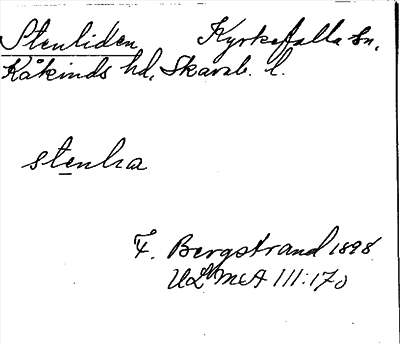 Stenliden Kyrkefalla sn,
Kåkinds hd, Skarab. l.
stenlıa
F. Bergstrand 1898
ULMA 111:170